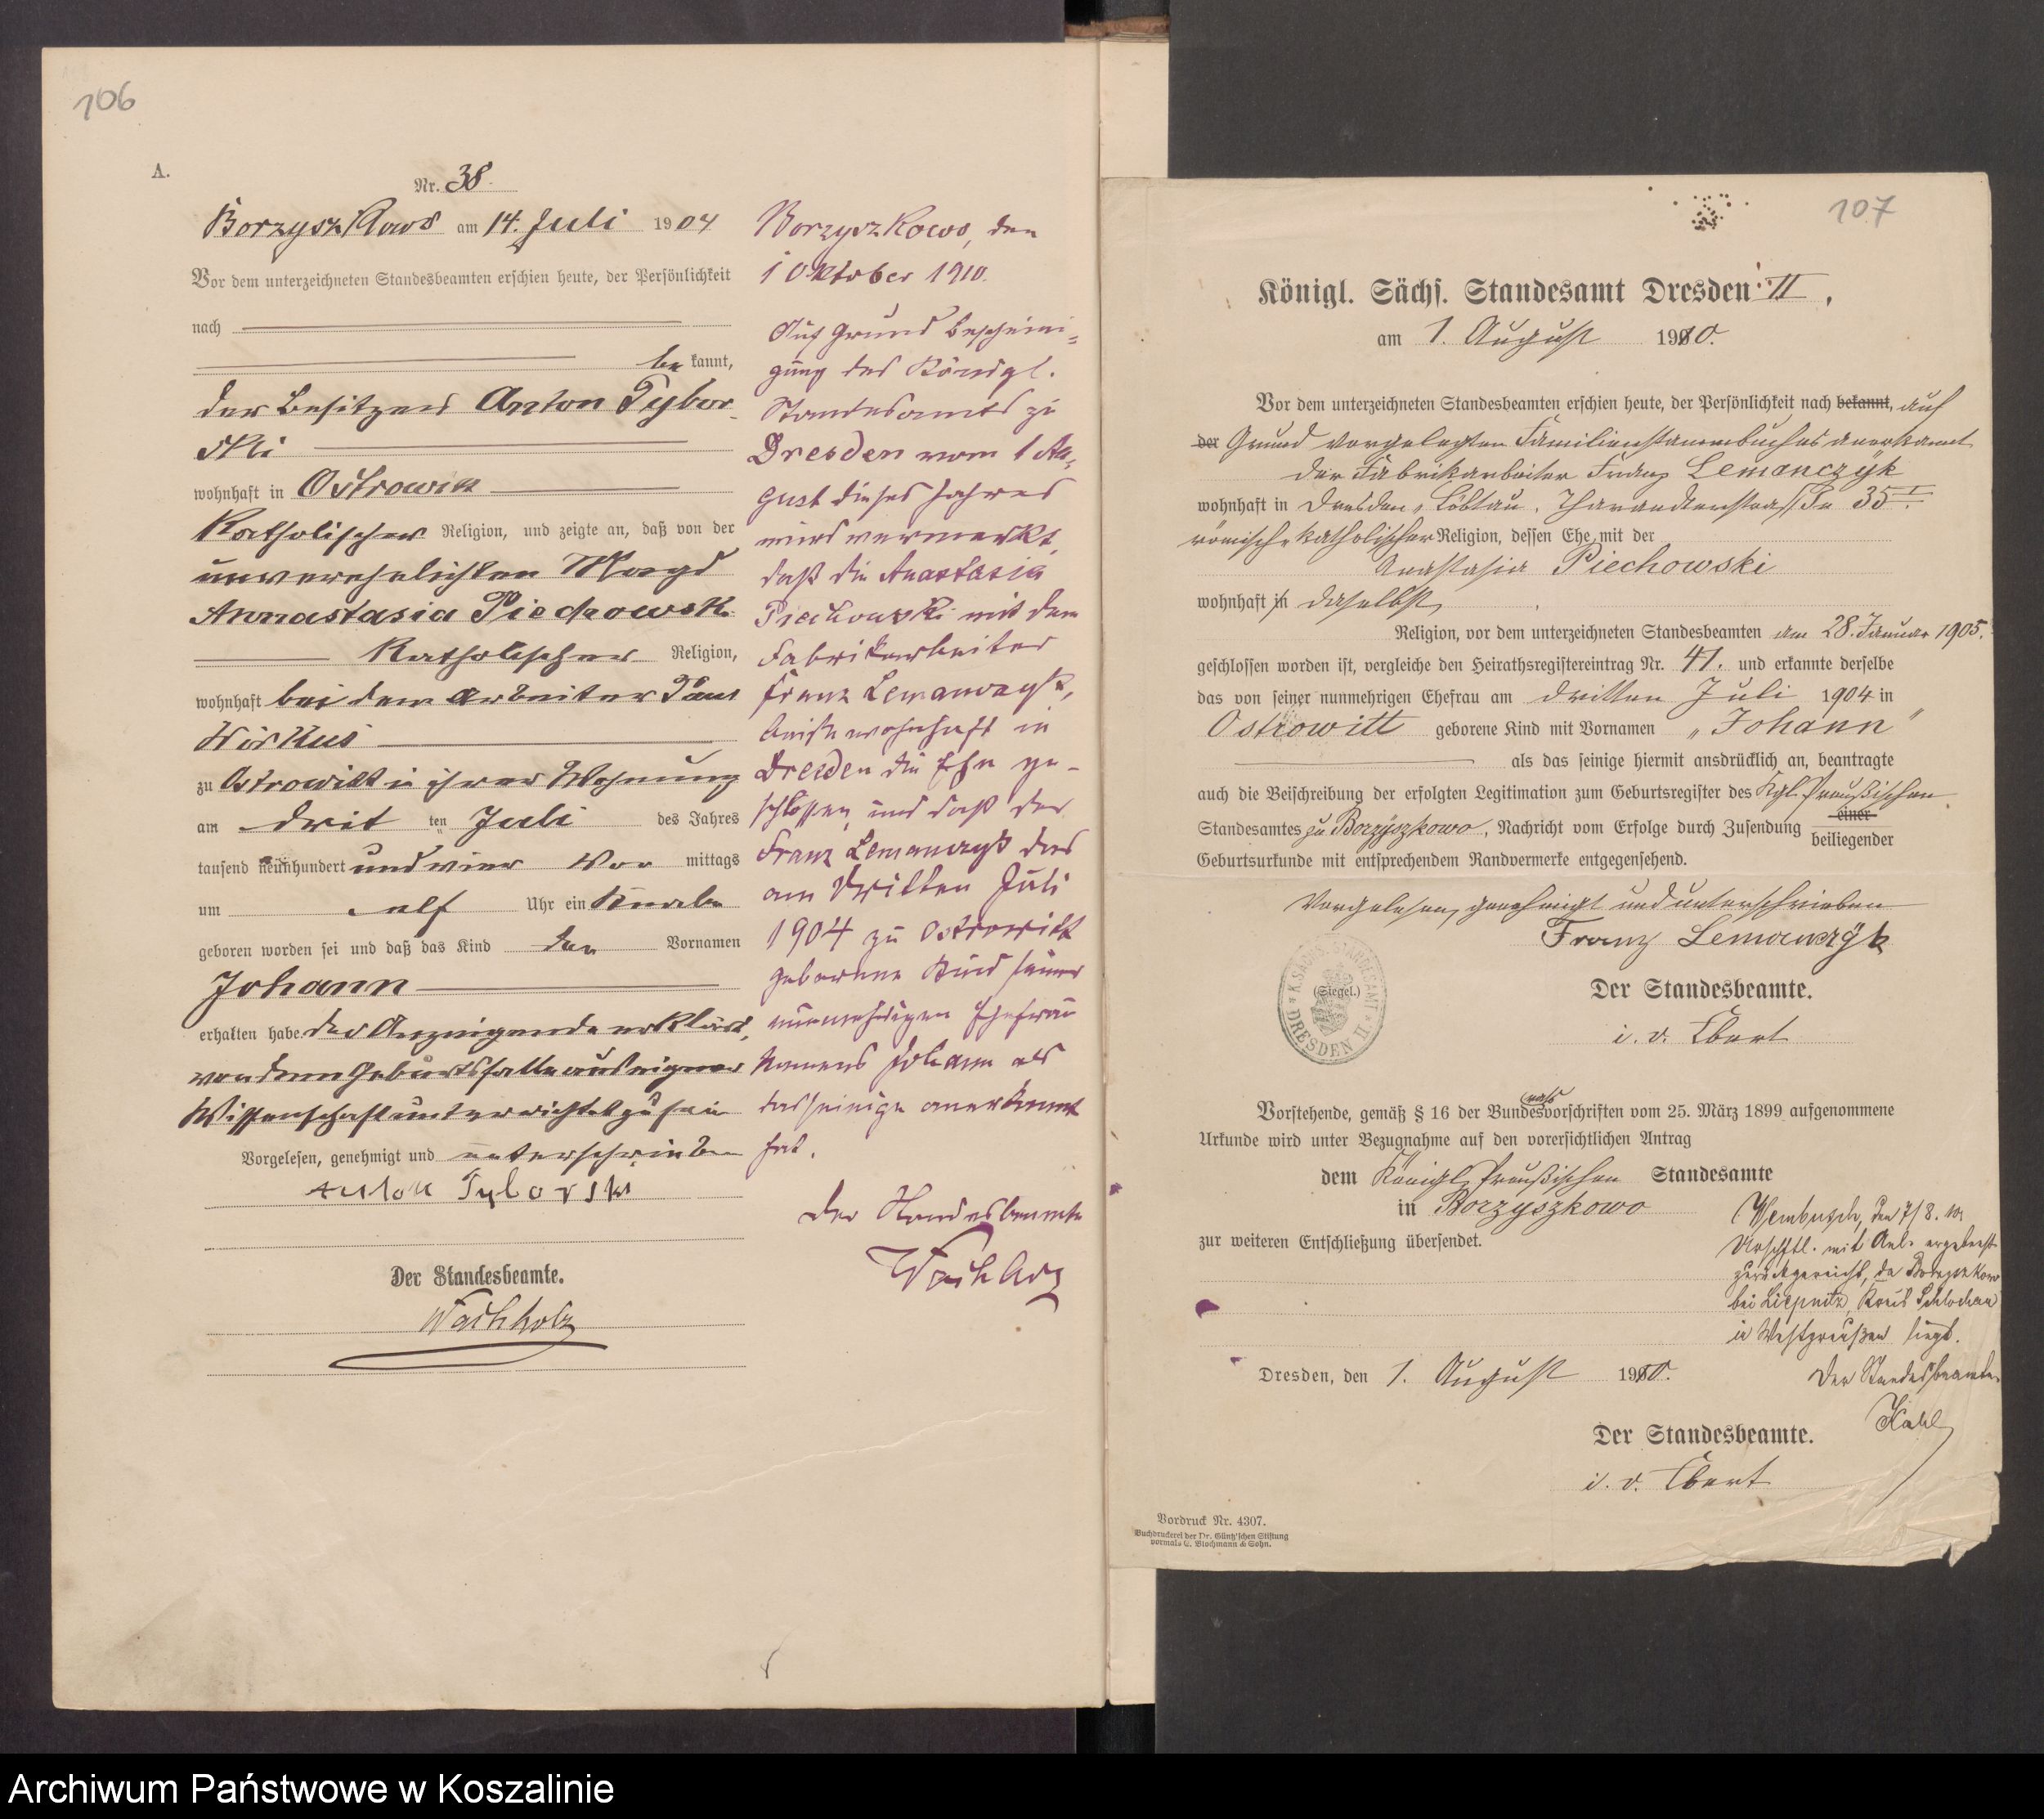 106
A.
Nr. 38.
Borzyszkowo am 14. Juli 1904
Vor dem unterzeichneten Standesbeamten erschien heute, der Persönlichkeit
nach
be kannt,
der Besitzer Anton Tybor-
ski
wohnhaft in Ostrowitt
Katholischer Religion, und zeigte an, daß von der
unverehelichten Magd
Annastasia Piechowski
Katholischer Religion,
wohnhaft bei dem Arbeiter Paul
Wirkus
zu Ostrowitt in ihrer Wohnung
am drit ten Juli des Jahres
tausend neunhundert und vier Vor mittags
um elf Uhr ein Knabe
geboren worden sei und daß das Kind den Vornamen
Johann
erhalten habe. Der Anzeigende erklärt,
von dem Geburtsfalle aus eigner
Wissenschaft unterrichtet zu sein
Vorgelesen, genehmigt und unterschrieben
Anton Tyborski
Der Standesbeamte.
Wachholz
Borzyszkowo, den
1 Oktober 1910.
Auf Grund Bescheini=
gung des Königl.
Standesamts zu
Dresden vom 1 Au-
gust dieses Jahres
wird vermerkt,
daß die Anastasia
Piechowski mit dem
Fabrikarbeiter
Franz Lemanczyk,
beide wohnhaft in
Dresden die Ehe ge-
schlossen, und daß der
Franz Lemanczyk das
am dritten Juli
1904 zu Ostrowitt
geborene Kind seiner
nunmehrigen Ehefrau
Namens Johann als
das seinige anerkannt
hat.
Der Standesbeamte
Wachholz
107
Königl. Sächs. Standesamt Dresden II,
am 1. August 1910.
Vor dem unterzeichneten Standesbeamten erschien heute, der Persönlichkeit nach bekannt, auf
der Grund vorgelegten Familienstammbuches anerkannt
der Fabrikarbeiter Franz Lemanczyk
wohnhaft in Dresden-Löbtau, Tharandterstraße 35 I.
römisch-katholischer Religion, dessen Ehe mit der
Anastasia Piechowski
wohnhaft in daselbst,
Religion, vor dem unterzeichneten Standesbeamten am 28. Januar 1905.
geschlossen worden ist, vergleiche den Heirathsregistereintrag Nr. 41. und erkannte derselbe
das von seiner nunmehrigen Ehefrau am dritten Juli 1904 in
Ostrowitt geborene Kind mit Vornamen „Johann"
als das seinige hiermit ausdrücklich an, beantragte
auch die Beischreibung der erfolgten Legitimation zum Geburtsregister des Kgl. Preußischen
Standesamtes zu Borzyszkowo, Nachricht vom Erfolge durch Zusendung einer beiliegender
Geburtsurkunde mit entsprechendem Randvermerke entgegensehend.
Vorgelesen, genehmigt und unterschrieben
Franz Lemanczyk
(Siegel.)
K. SÄCHS. STANDESAMT DRESDEN II
Der Standesbeamte.
i. V. Ebert
Vorstehende, gemäß § 16 der Bundesratsvorschriften vom 25. März 1899 aufgenommene
Urkunde wird unter Bezugnahme auf den vorersichtlichen Antrag
dem Königl. Preußischen Standesamte
in Borzyszkowo
zur weiteren Entschließung übersendet.
den 7/8. 10
Urschftl. mit Anl. ergebenst
zurückgereicht, da Borzyszkowo
bei Liepnitz, Kreis Schlochau
in Westpreußen liegt.
Der Standesbeamte.
Dresden, den 1. August 1910.
Der Standesbeamte.
i. V. Ebert
Vordruck Nr. 4307.
Buchdruckerei der Dr. Güntz'schen Stiftung
vormals C. Blochmann & Sohn.
Archiwum Państwowe w Koszalinie